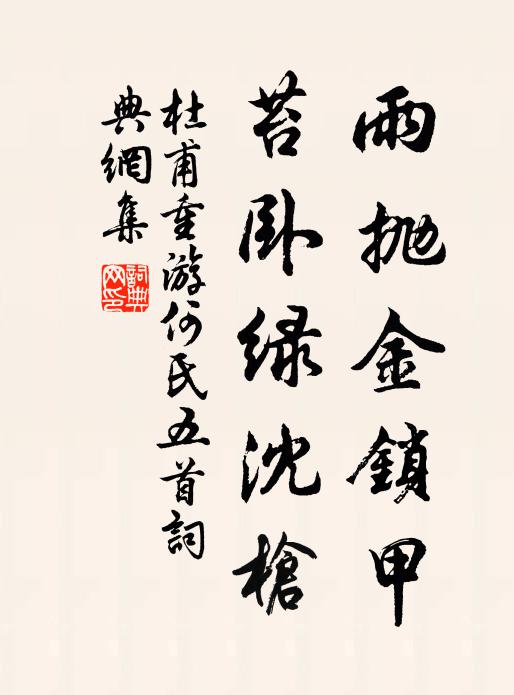 雨抛金鎖甲
苔卧緑沈槍
杜甫重游何氏五首詞
典網集
詞典
网印